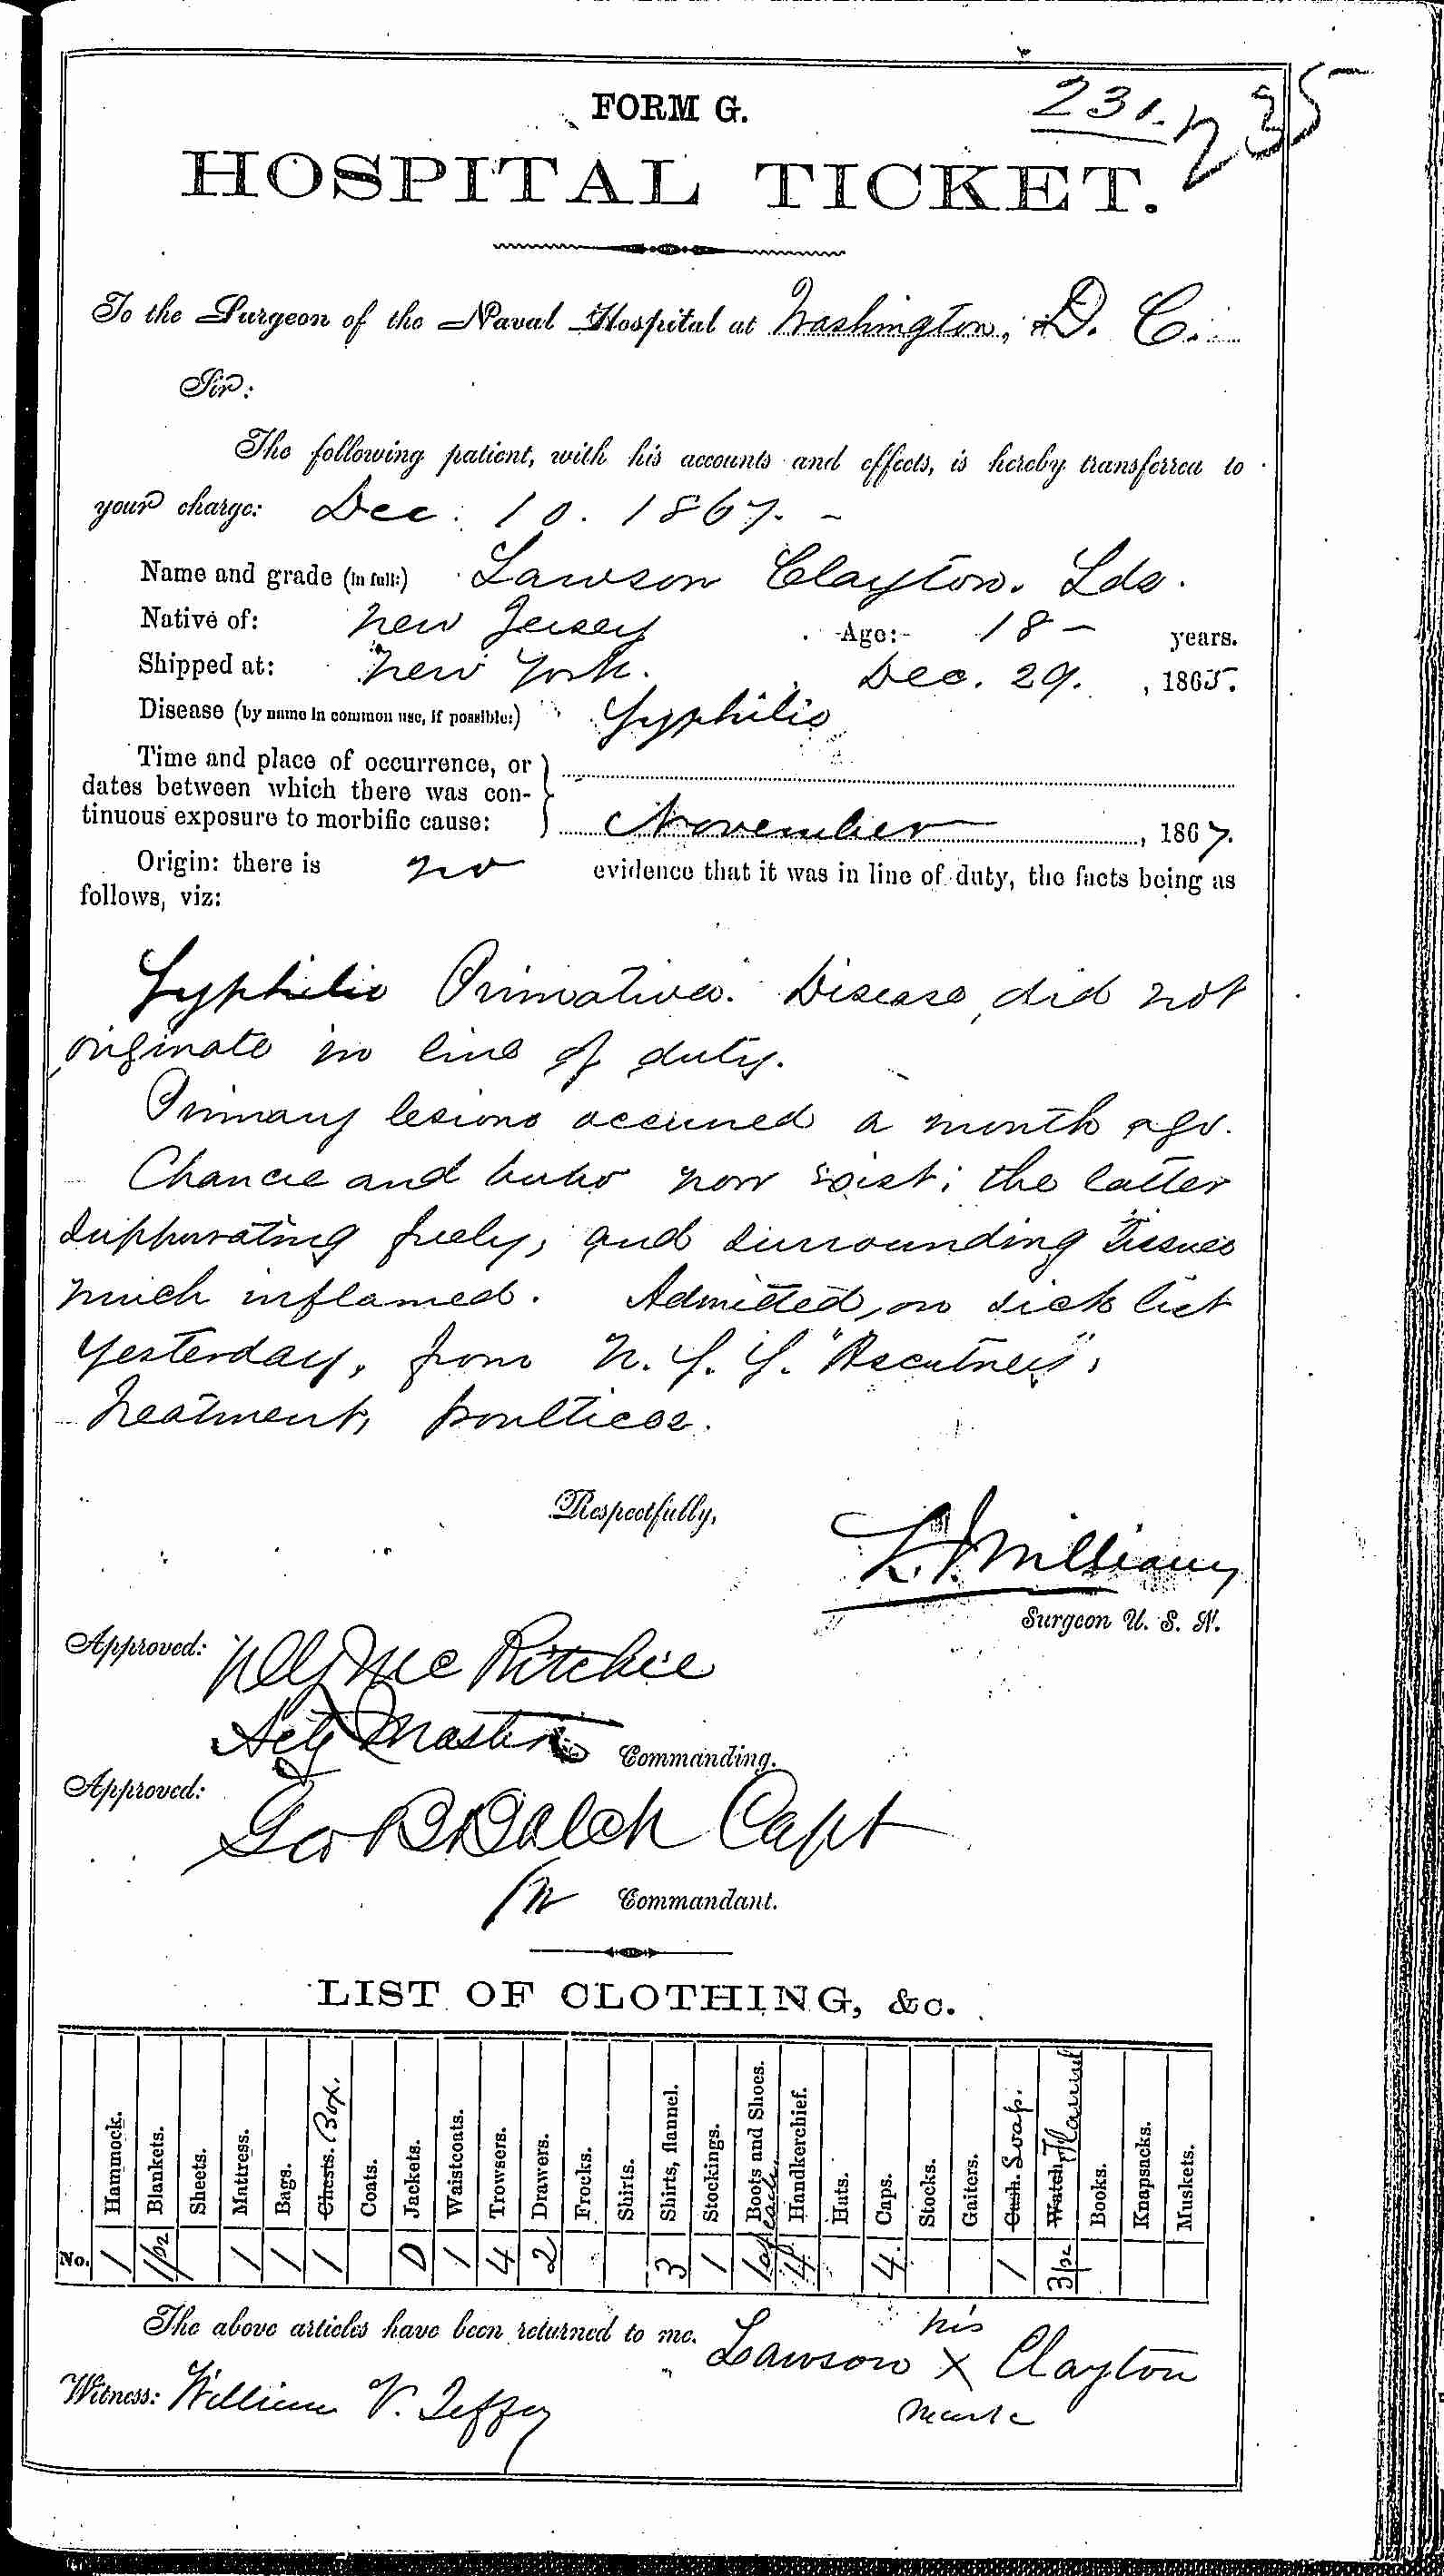 231.
235
FORM G.
HOSPITAL TICKET.
To the Surgeon of the Naval Hospital at Washington, D. C.
Sir:
The following patient, with his accounts and effects, is hereby transferred to
your charge: Dec. 10. 1867. –
Name and grade (in full:) Lawson Clayton. Lds.
Native of: New Jersey Age: 18 – years.
Shipped at: New York. Dec. 29. , 1865.
Disease (by name in common use, if possible:) Syphilis
Time and place of occurrence, or
dates between which there was con-
tinuous exposure to morbific cause: November , 1867.
Origin: there is no evidence that it was in line of duty, the facts being as
follows, viz:
Syphilis Primativa. Disease, did not
originate in line of duty.
Primary lesions occurred a month ago.
Chancre and bubo now exist; the latter
suppurating freely, and surrounding tissues
much inflamed. Admitted, on sick list
yesterday, from N. Y. Y. "Ascutney",
Treatment, poultices.
Respectfully,
Surgeon U. S. N.
Approved: McRitchie
Actg Master Commanding.
Approved:
Geo B Balch Capt
Commandant.
LIST OF CLOTHING, &c.
Hammock. Blankets. Sheets. Mattress. Bags. Chests. Box. Coats. Jackets. Waistcoats. Trowsers. Drawers. Frocks. Shirts. Shirts, flannel. Stockings. Boots and Shoes. each. Handkerchief. Hats. Caps. Stocks. Gaiters. Cash. Soap. Watch. Flannel Books. Knapsacks. Muskets.
No. 1 1pr 1 1 1 0 1 4 2 3 1 1 of 4 4. 1 3pr
The above articles have been returned to me. Lawson his X mark Clayton
Witness: William V.